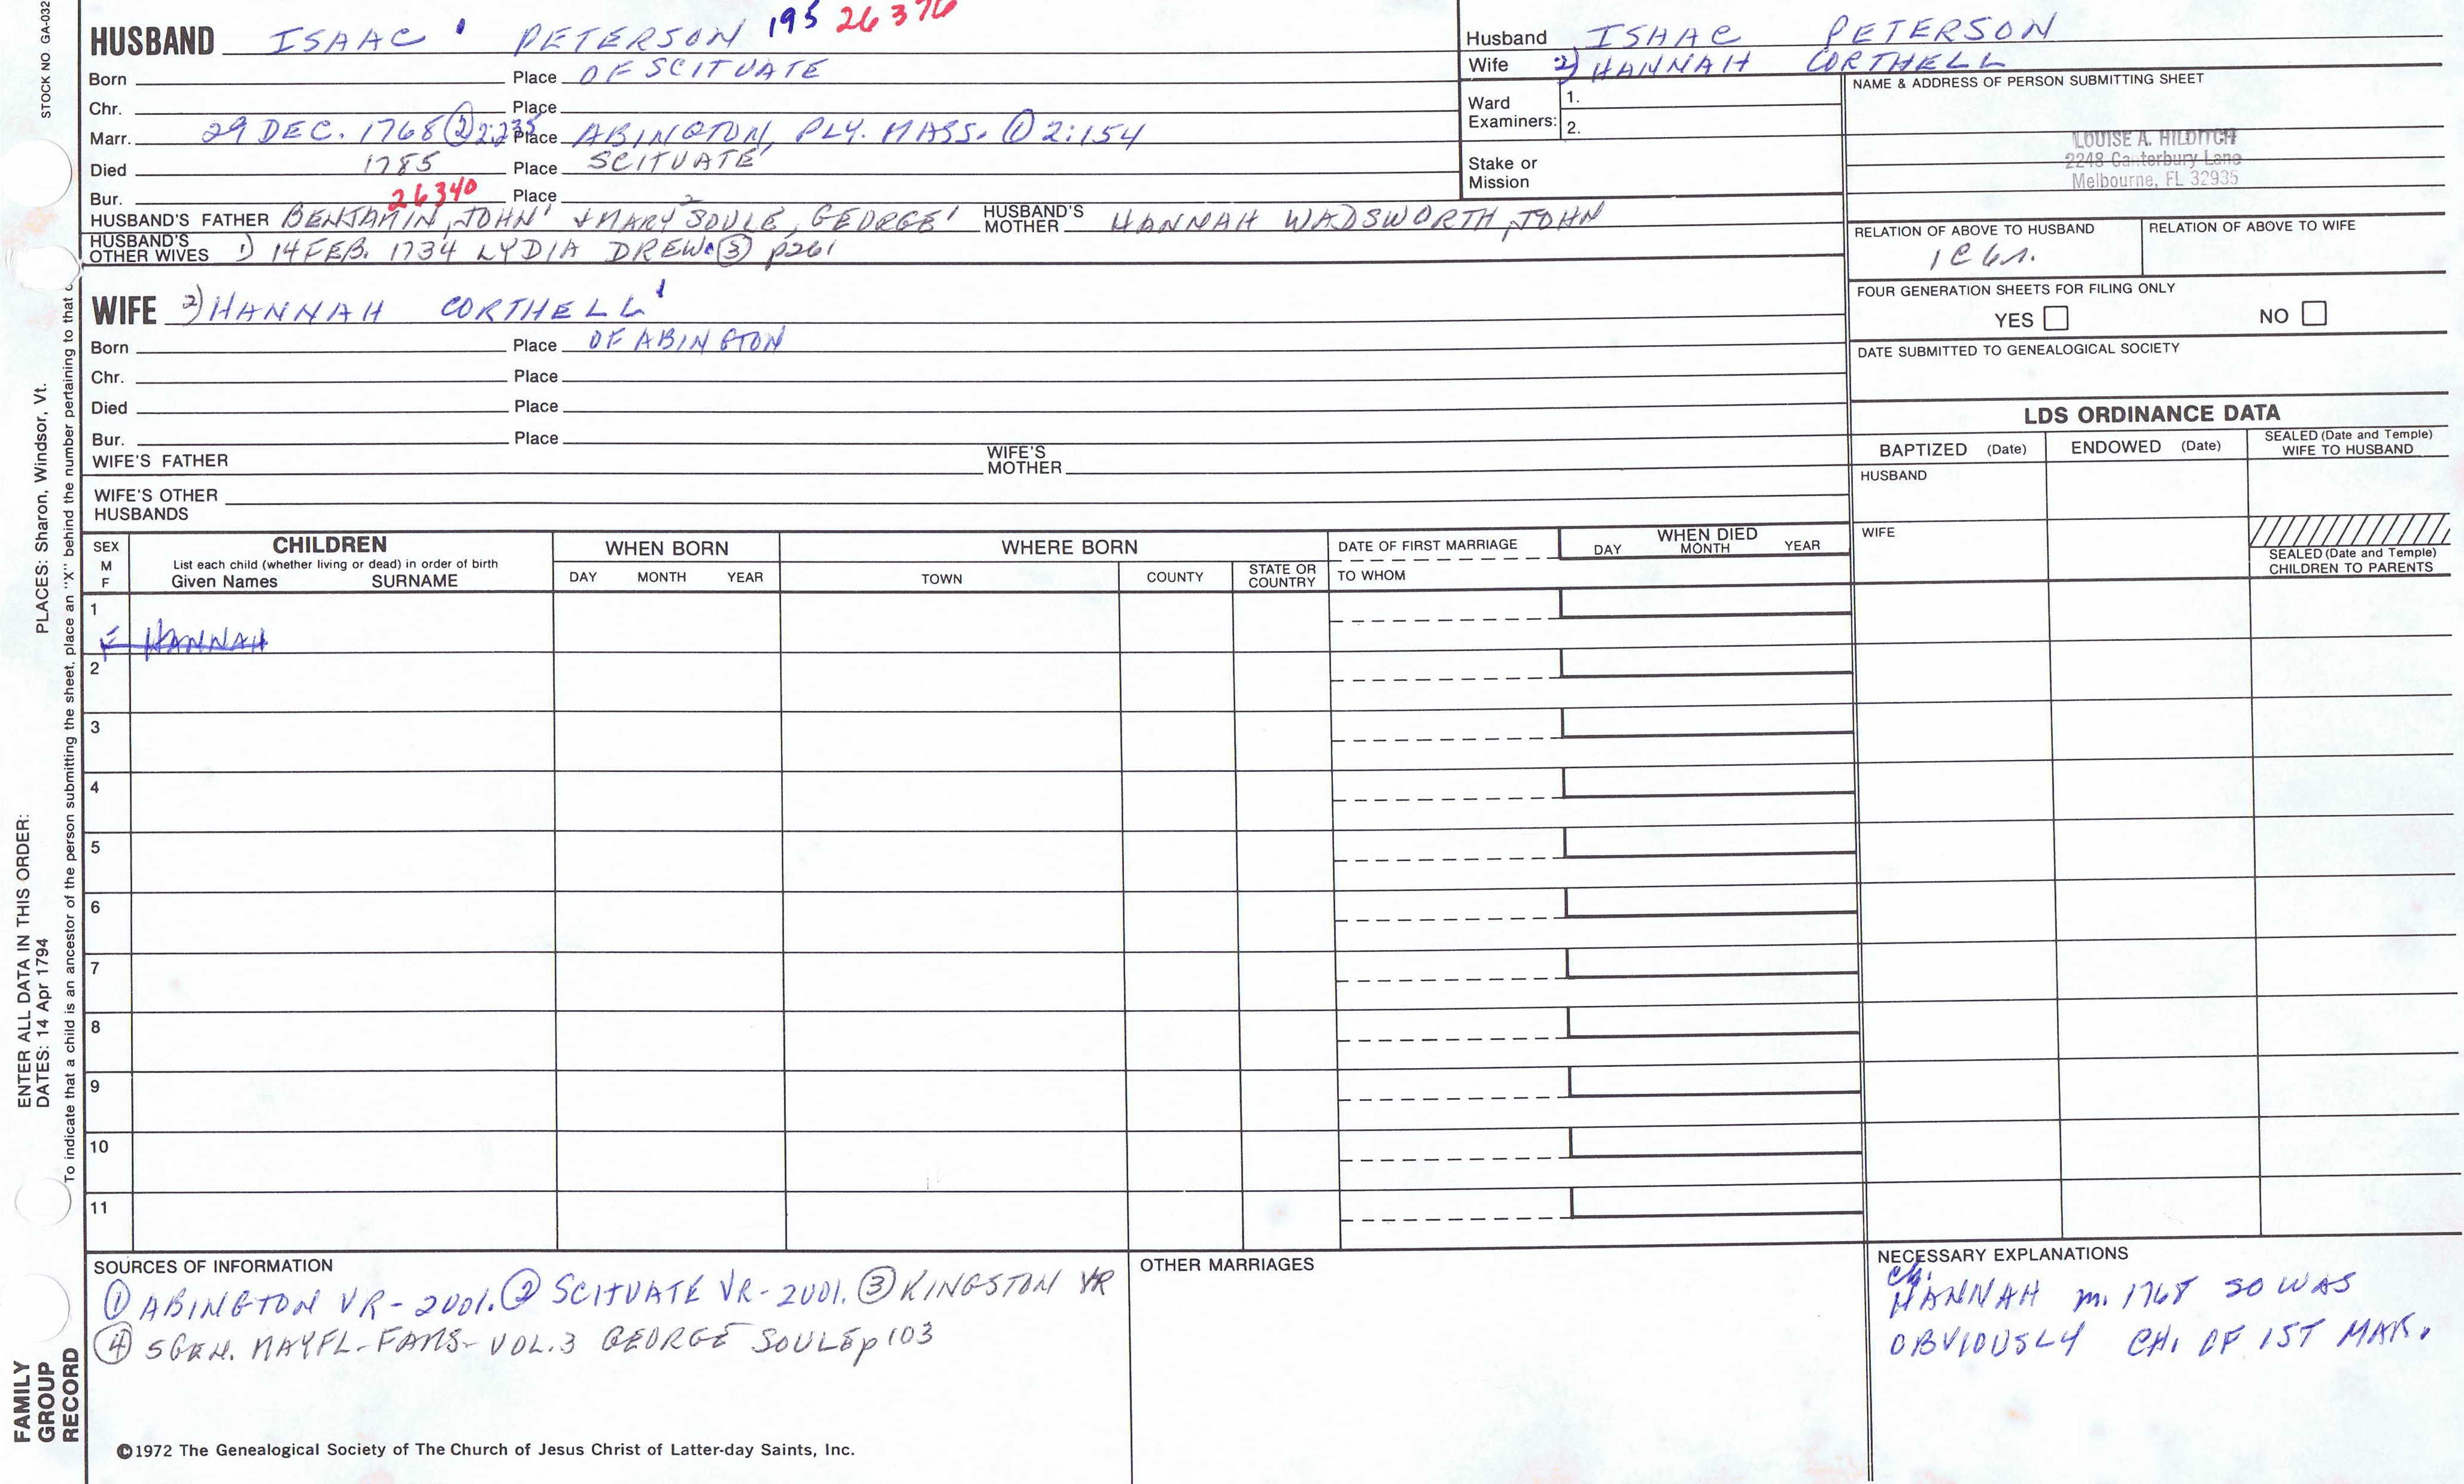 STOCK NO GA-032
PLACES: Sharon, Windsor, Vt.
ENTER ALL DATA IN THIS ORDER:
DATES: 14 Apr 1794
To indicate that a child is an ancestor of the person submitting the sheet, place an "X" behind the number pertaining to that
FAMILY
GROUP
RECORD
HUSBAND ISAAC PETERSON 195 26376
Born Place OF SCITUATE
Chr. Place
Marr. 29 DEC. 1768 ② 2:235 Place ABINGTON, PLY. MASS. ① 2:154
Died 1785 Place SCITUATE
Bur. 26340 Place
HUSBAND'S FATHER BENJAMIN, JOHN' & MARY² SOULE, GEORGE' HUSBAND'S MOTHER HANNAH WADSWORTH, JOHN
HUSBAND'S OTHER WIVES 1) 14 FEB. 1734 LYDIA DREW. ③ p261
WIFE 2) HANNAH CORTHELL
Born Place OF ABINGTON
Chr. Place
Died Place
Bur. Place
WIFE'S FATHER WIFE'S MOTHER
WIFE'S OTHER HUSBANDS
Husband ISAAC PETERSON
Wife 2) HANNAH CORTHELL
Ward Examiners: 1.
2.
Stake or Mission
NAME & ADDRESS OF PERSON SUBMITTING SHEET
LOUISE A. HILDITCH
2248 Canterbury Lane
Melbourne, FL 32935
RELATION OF ABOVE TO HUSBAND RELATION OF ABOVE TO WIFE
1C6r.
FOUR GENERATION SHEETS FOR FILING ONLY
YES NO
DATE SUBMITTED TO GENEALOGICAL SOCIETY
LDS ORDINANCE DATA
BAPTIZED (Date) ENDOWED (Date) SEALED (Date and Temple) WIFE TO HUSBAND
HUSBAND
WIFE
SEALED (Date and Temple) CHILDREN TO PARENTS
SEX M F
CHILDREN
List each child (whether living or dead) in order of birth
Given Names SURNAME
WHEN BORN
DAY MONTH YEAR
WHERE BORN
TOWN COUNTY STATE OR COUNTRY
DATE OF FIRST MARRIAGE
TO WHOM
WHEN DIED
DAY MONTH YEAR
1
F HANNAH
2
3
4
5
6
7
8
9
10
11
SOURCES OF INFORMATION
① ABINGTON VR - 2001. ② SCITUATE VR - 2001. ③ KINGSTON VR
④ 5 GEN. MAYFL-FAMS- VOL.3 GEORGE SOULE p103
OTHER MARRIAGES
NECESSARY EXPLANATIONS
ch.
HANNAH m. 1768 SO WAS
OBVIOUSLY CH. OF 1ST MAR.
©1972 The Genealogical Society of The Church of Jesus Christ of Latter-day Saints, Inc.